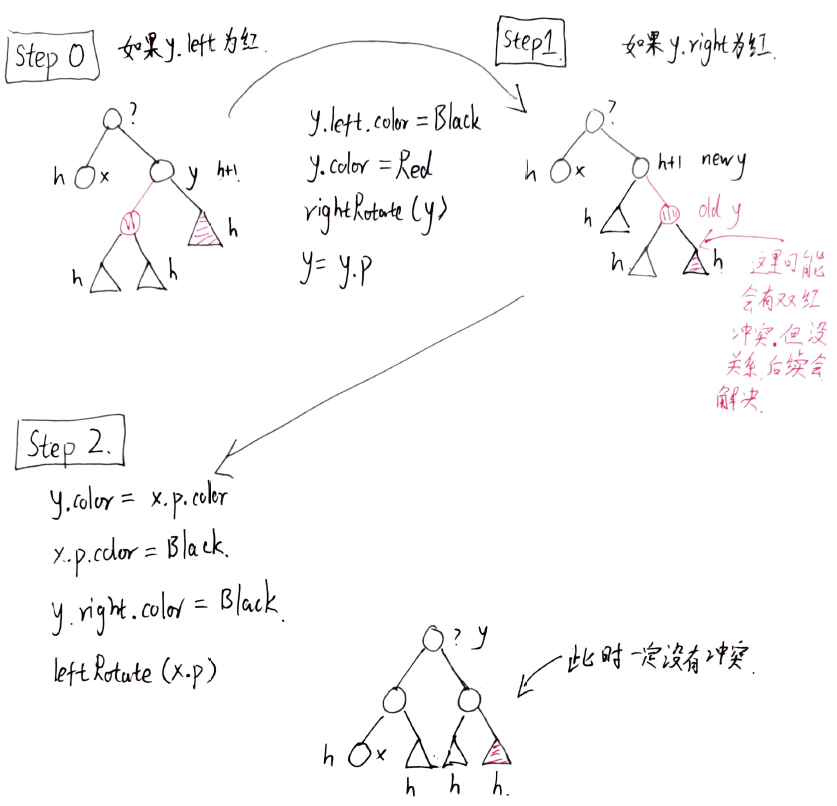 Step 0
如果y.left为红.
?
h
x
y
h+1.
h
h
h
y.left.color = Black
y.color = Red
rightRotate (y)
y = y.p
Step1
如果y.right为红.
?
h
x
h+1 new y
h
old y
h
h
这里可能
会有双红
冲突.但没
关系,后续会
解决.
Step 2.
y.color = x.p.color
x.p.color = Black.
y.right.color = Black.
leftRotate (x.p)
? y
此时一定没有冲突.
h
x
h
h
h.